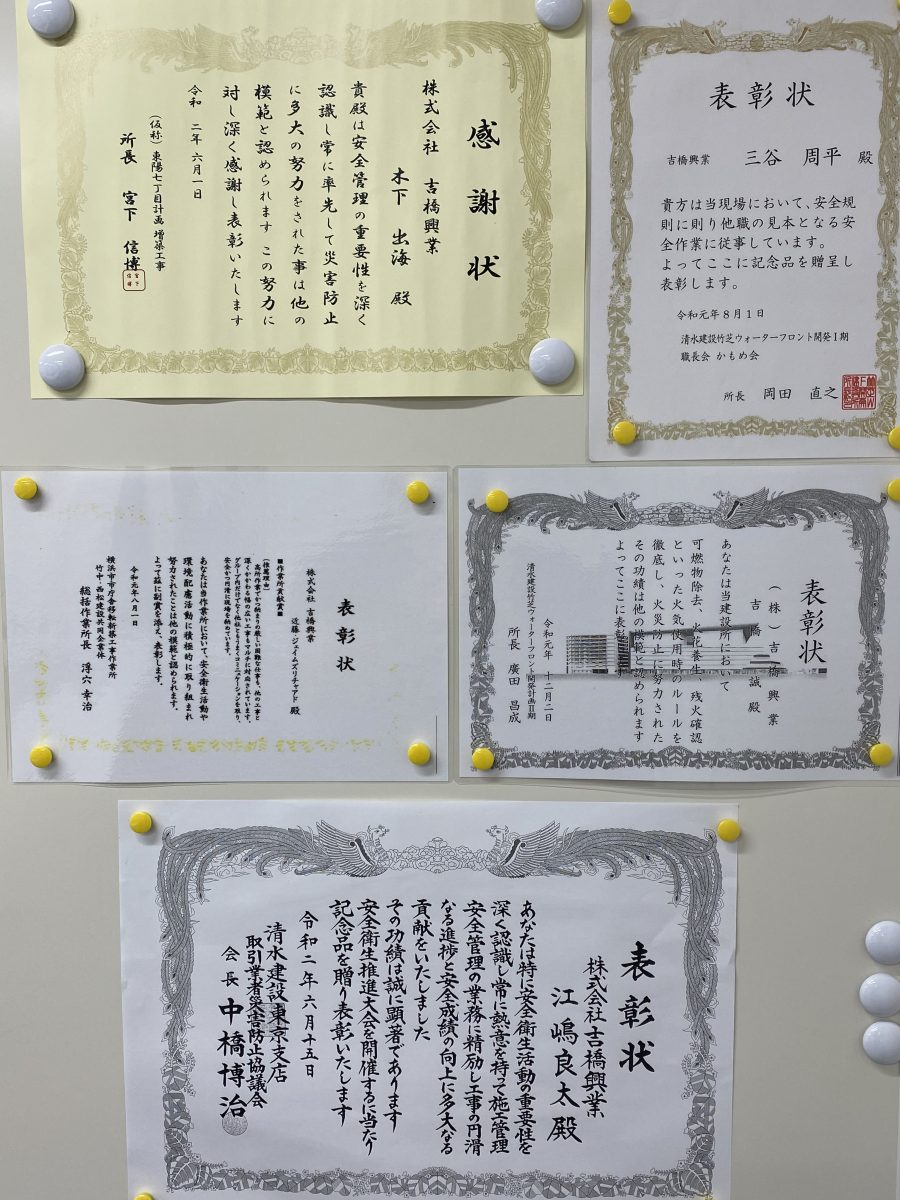 感謝状
株式会社 吉橋興業
木下 出海 殿
貴殿は安全管理の重要性を深く
認識し常に率先して災害防止
に多大の努力をされた事は他の
模範と認められます この努力に
対し深く感謝し表彰いたします
令和 二年 六月一日
(仮称)東陽七丁目計画 増築工事
所長 宮下 信博
表彰状
吉橋興業 三谷 周平 殿
貴方は当現場において、安全規
則に則り他職の見本となる安
全作業に従事しています。
よってここに記念品を贈呈し
表彰します。
令和元年8月1日
清水建設竹芝ウォーターフロント開発Ⅰ期
職長会 かもめ会
所長 岡田 直之
表彰状
株式会社 吉橋興業
近藤・ジェイムズリチャアド 殿
■作業所貢献賞■
(推薦理由)
高所作業でかつ納まりの厳しい困難な仕事も、他の工事と
深くかかわる幅の広い工事もマルチに対応されています。
グループ内だけでなく他社ともうまくコミュニケーションを取り、
安全かつ円滑に現場を納めています。
あなたは当作業所において、安全衛生活動や
環境配慮活動に積極的に取り組まれ
努力されたことは他の模範と認められます。
よって茲に副賞を添え、表彰します。
令和元年八月一日
横浜市市庁舎移転新築工事作業所
竹中・西松建設共同企業体
総括作業所長 浮穴 幸治
表彰状
(株)吉橋興業
吉橋 誠 殿
あなたは当建設所において
可燃物除去、火花養生、残火確認
といった火気使用時のルールを
徹底し、火災防止に努力された
その功績は他の模範と認められます
よってここに表彰します
令和元年 十二月二日
清水建設竹芝ウォーターフロント開発計画Ⅱ期
所長 廣田 昌成
表彰状
株式会社吉橋興業
江嶋良太殿
あなたは特に安全衛生活動の重要性を
深く認識し常に熱意を持って施工管理
安全管理の業務に精励し工事の円滑
なる進捗と安全成績の向上に多大なる
貢献をいたしました
その功績は誠に顕著であります
安全衛生推進大会を開催するに当たり
記念品を贈り表彰いたします
令和二年六月十五日
清水建設東京支店
取引業者災害防止協議会
会長 中橋博治